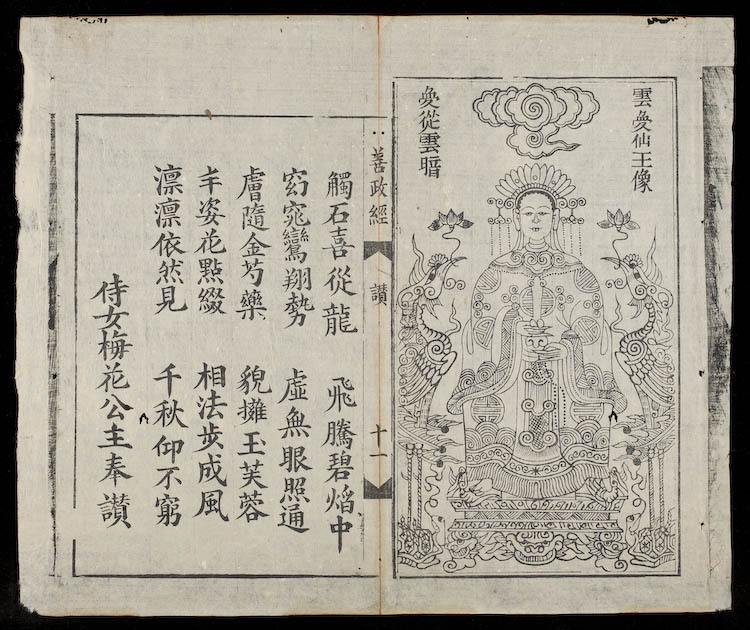 雲仙王像
從雲暗
善政經
讚
十一
觸石喜從龍 飛騰碧焰中
窈窕鸞翔勢 虛無眼照通
膚隨金芍藥 貌擁玉芙蓉
丰姿花點綴 相法步成風
凛凛依然見 千秋仰不窮
侍女梅花公主奉讚